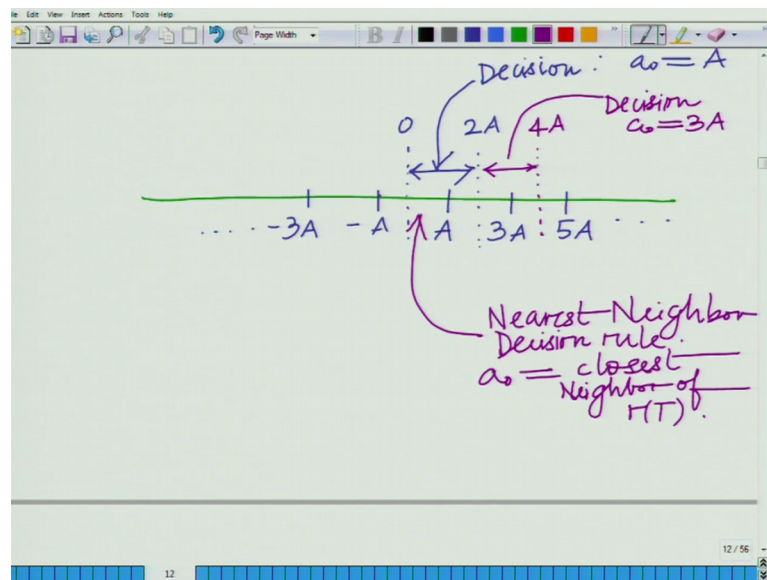 Edit View Insert Actions Tools Help
Page Width
B I
Decision : a₀ = A
Decision
a₀ = 3A
0 2A 4A
..... -3A -A A 3A 5A ....
Nearest-Neighbor
Decision rule.
a₀ = closest
Neighbor of
r(T).
12 / 56
12